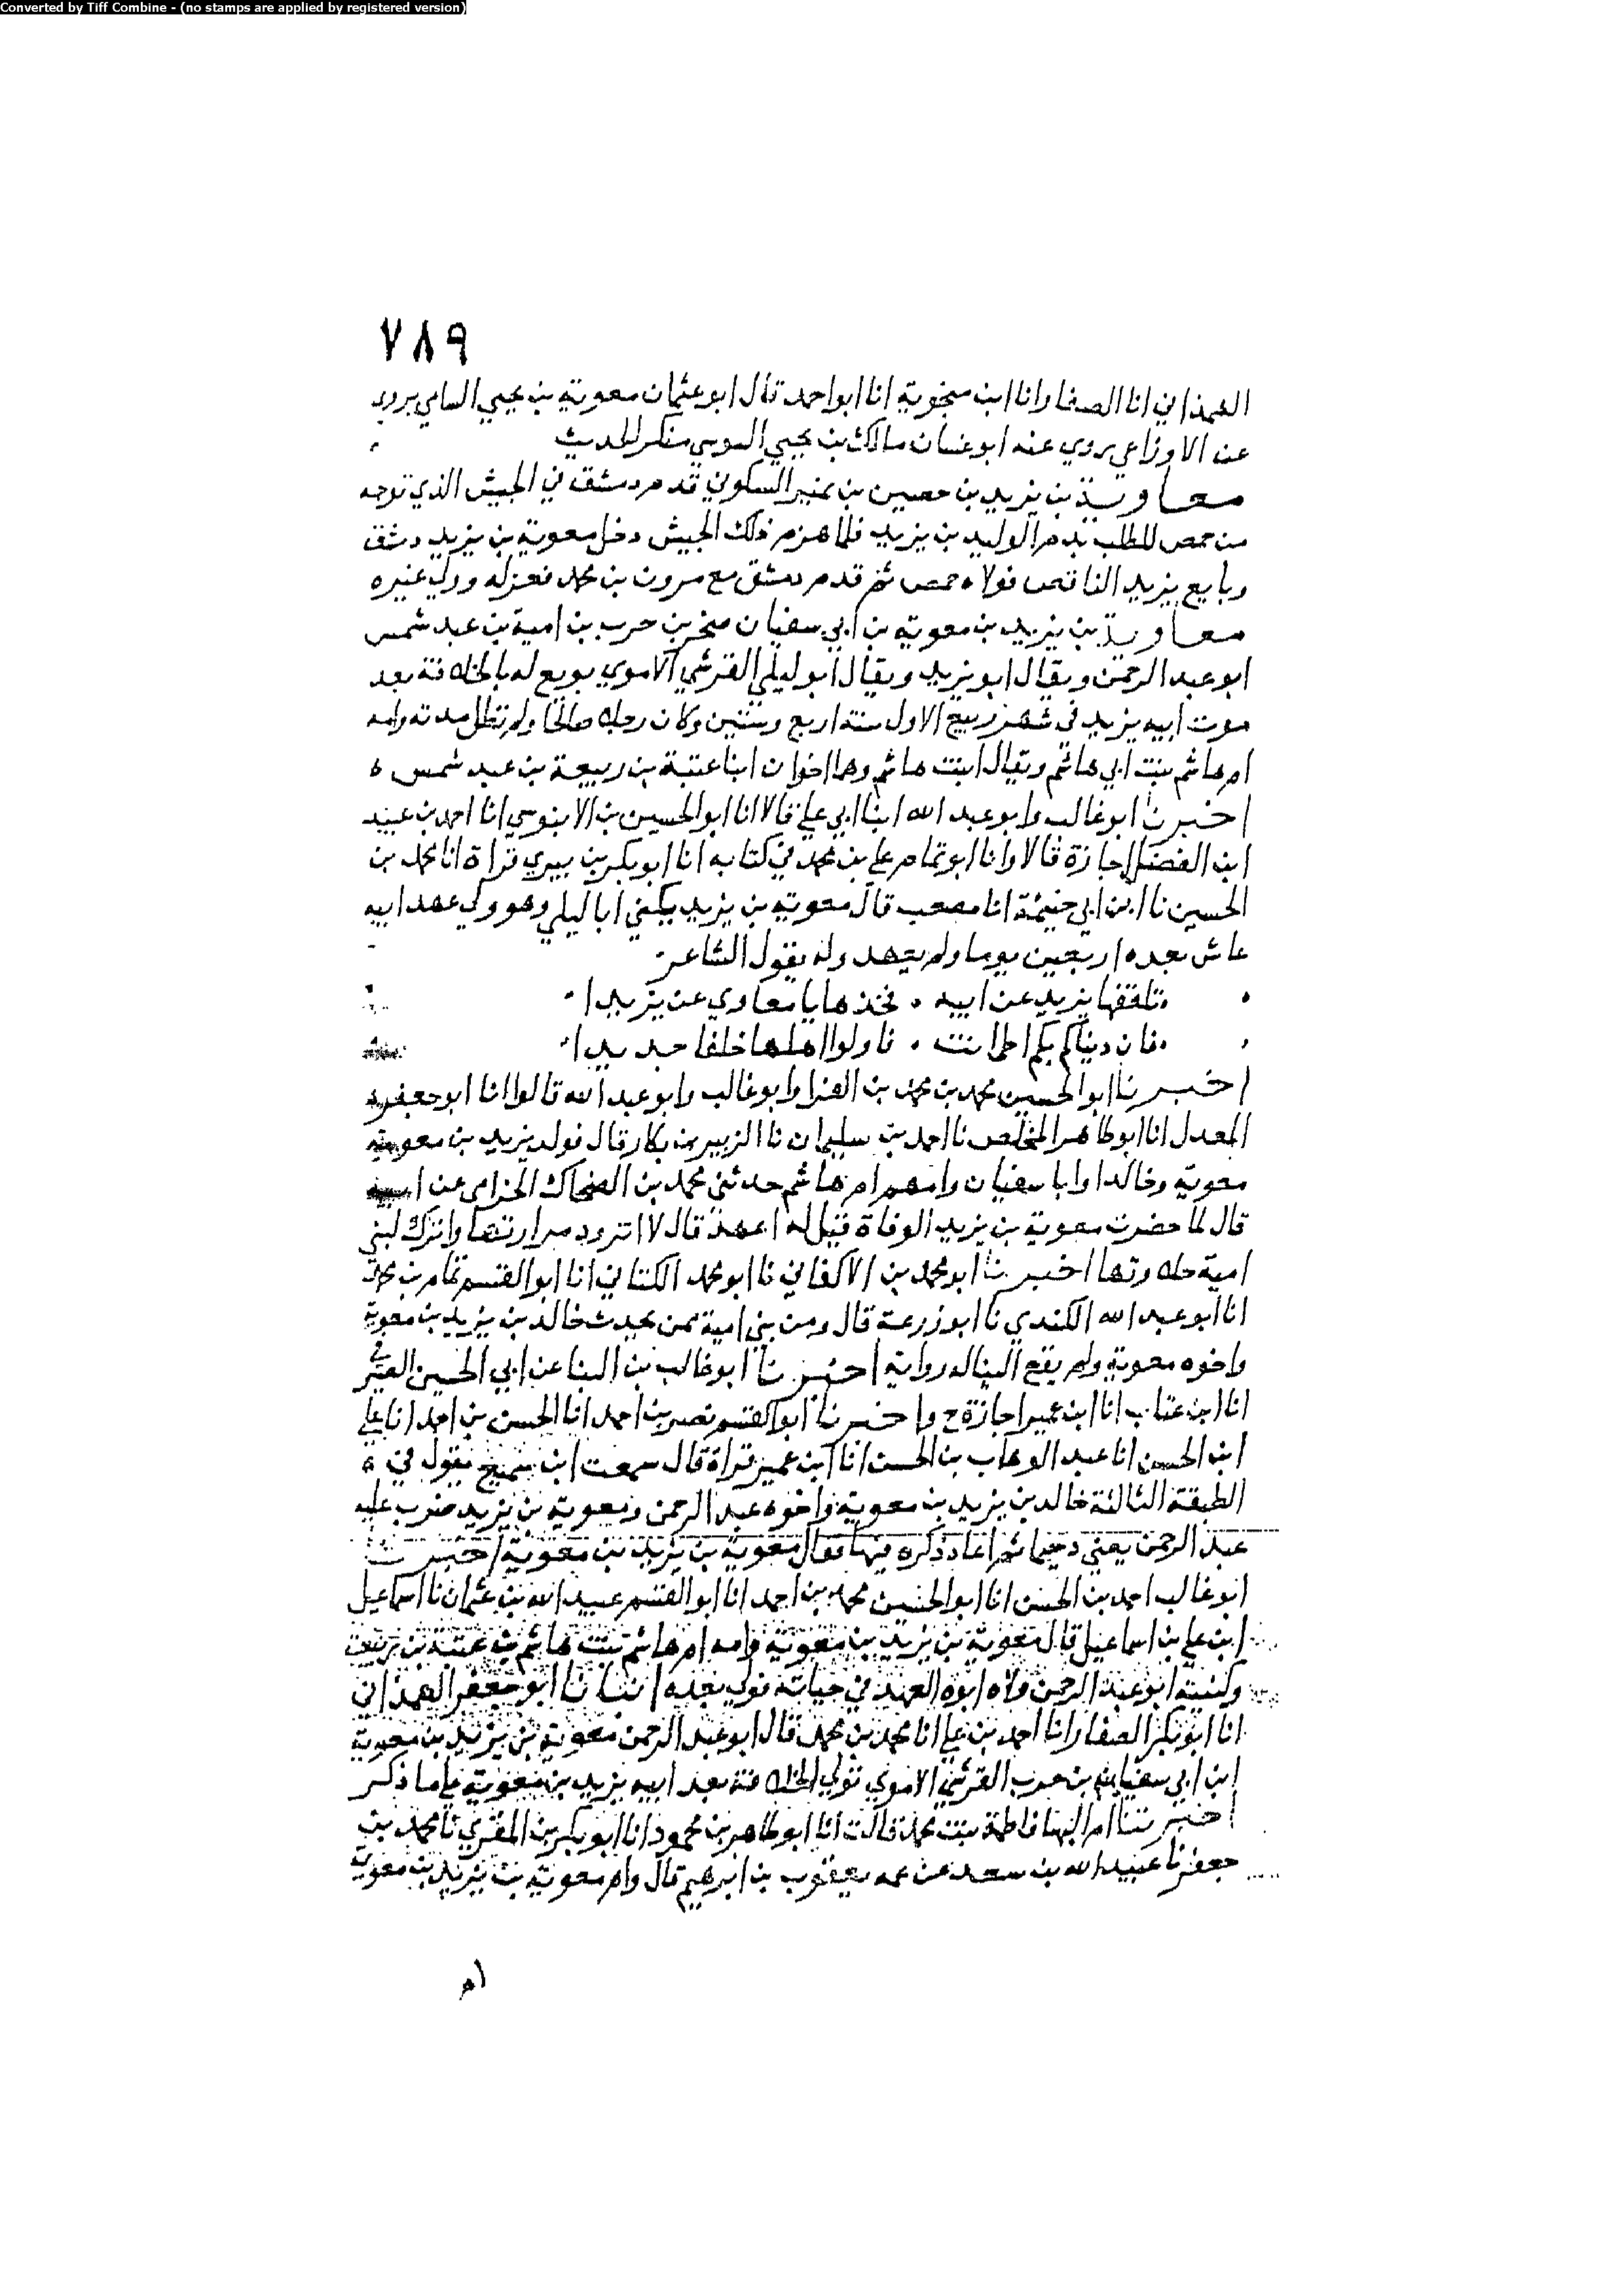 Converted by Tiff Combine - (no stamps are applied by registered version)
٧٨٩
الهمذاني انا الصفار انا ابن منجوية انا ابو احمد قال ابو عثمان معوية بن يحيي الشامي يروي
عن الاوزاعي يروي عنه ابو غسان مالك بن يحيي السوسي منكر الحديث
معاوية بن يزيد بن حصين بن نمير السكوني قدم دمشق في الجيش الذي توجه
من حمص للطلب بدم الوليد بن يزيد فلما هزم ذلك الجيش دخل معوية بن يزيد دمشق
وبايع يزيد الناقص فولاه حمص ثم قدم دمشق مع مرون بن محمد فعزله وولي غيره
معاوية بن يزيد بن معوية بن ابي سفيان صخر بن حرب بن امية بن عبد شمس
ابو عبد الرحمن ويقال ابو يزيد ويقال ابو ليلي القرشي الاموي بويع له بالخلافة بعد
موت ابيه يزيد في شهر ربيع الاول سنة اربع وستين وكان رجلا صالحا ولم تطل مدته وامه
ام هاشم بنت ابي هاشم ويقال ابنت هاشم وهما اخوان ابنا عتبة بن ربيعة بن عبد شمس ه
اخبرنا ابو غالب وابو عبد الله ابنا ابي علي قالا انا ابو الحسين بن الابنوسي انا احمد بن عبيد
ابن الفضل اجازة قالا وانا ابو تمام علي بن محمد في كتابه انا ابو بكر بن بيري قراة انا محمد بن
الحسين نا ابن ابي خيثمة انا مصعب قال معوية بن يزيد يكني ابا ليلي وهو ولي عهد ابيه
عاش بعده اربعين يوما ولم يعهد وله يقول الشاعر
تلقفها يزيد عن ابيه ٠ فخذها يا معاوي عن يزيدا
فان دنياكم بكم اطمانت ٠ فاولوا اهلها خلقا جديدا
اخبرنا ابو الحسين محمد بن محمد بن الفرا وابو غالب وابو عبد الله قالوا انا ابو جعفر
المعدل انا ابو طاهر المخلص نا احمد بن سليمان نا الزبير بن بكار قال فولد يزيد بن معوية
معوية وخالدا وابا سفيان وامهم ام هاشم حدثني محمد بن الضحاك الحزامي عن ابيه
قال لما حضرت معوية بن يزيد الوفاة قيل له اعهد قال لا اتزود مرارتها واترك لبني
امية حلاوتها اخبرنا ابو محمد بن الاكفاني نا ابو محمد الكتاني انا ابو القسم تمام بن محمد
انا ابو عبد الله الكندي نا ابو زرعة قال ومن بني امية ممن يحدث خالد بن يزيد بن معوية
واخوه معوية ولم يقع الينا له رواية اخبرنا ابو غالب بن البنا عن ابي الحسين الصيرفي
انا ابن عتاب انا ابن عمير اجازة ح واخبرنا ابو القسم نصر بن احمد انا الحسن بن احمد انا علي
ابن الحسن انا عبد الوهاب بن الحسن انا ابن عمير قراة قال سمعت ابن سميع يقول في ه
الطبقة الثالثة خالد بن يزيد بن معوية واخوه عبد الرحمن ومعوية بن يزيد ضرب عليه
عبد الرحمن يعني دحيما ثم اعاد ذكره فيها فقال معوية بن يزيد بن معوية اخبرنا
ابو غالب احمد بن الحسن انا ابو الحسين محمد بن احمد انا ابو القسم عبيد الله بن عثمان نا اسماعيل
ابن علي بن اسماعيل قال معوية بن يزيد بن معوية وامه ام هاشم بنت هاشم بن عتبة بن ربيعة
وكنيته ابو عبد الرحمن ولاه ابوه العهد في حياته فولي بعده انبانا ابو جعفر الهمذاني
انا ابو بكر الصفار انا احمد بن علي انا محمد بن محمد قال ابو عبد الرحمن معوية بن يزيد بن معوية
ابن ابي سفيان بن حرب القرشي الاموي تولي الخلافة بعد ابيه يزيد بن معوية علي ما ذكر
اخبرتنا ام البها فاطمة بنت محمد قالت انا ابو طاهر بن محمود انا ابو بكر بن المقري نا محمد بن
جعفر نا عبيد الله بن سعد عن عمه يعقوب بن ابرهيم قال وام معوية بن يزيد بن معوية
ام